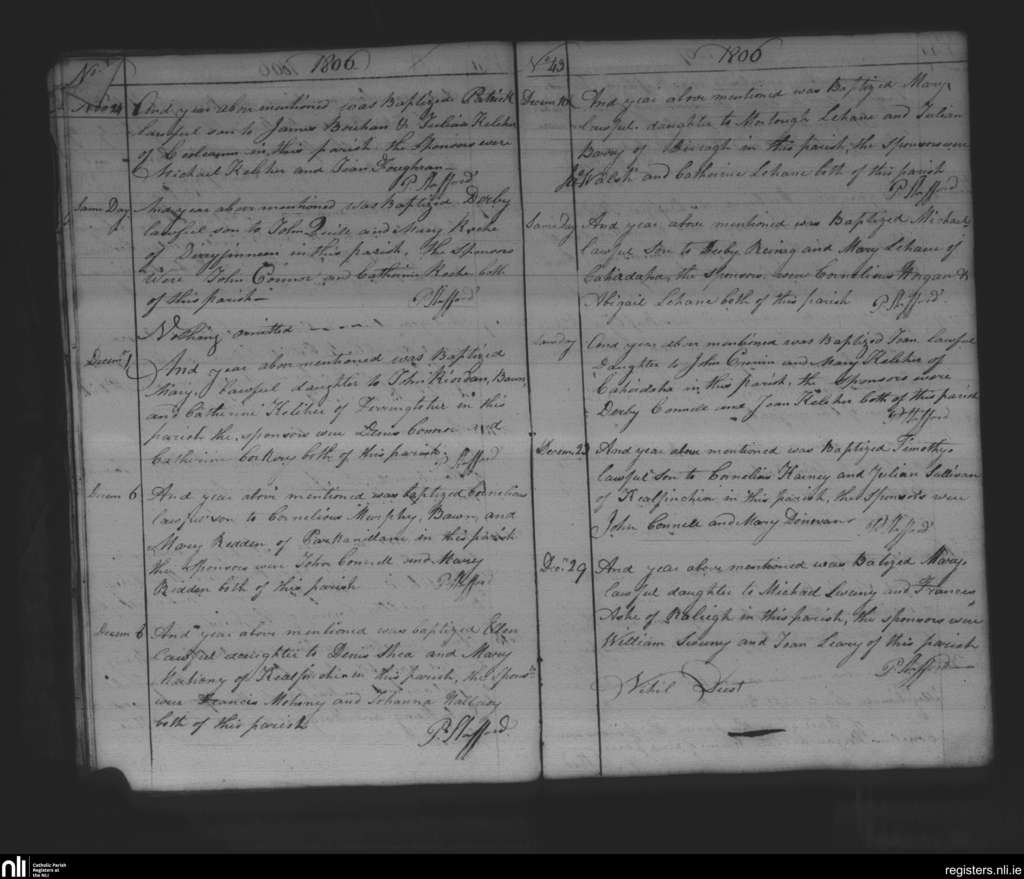 1806
Novr 24
And year above mentioned was Baptized Patrick
lawful son to James Brishan & Julian Kelcher
of in this parish the Sponsors were
Michael Kelcher and Joan
P. Stafford
Same Day
And year above mentioned was Baptized Derby
lawful son to John Quill and Mary Roche
of Derryfinneen in this parish, the Sponsors
Were John Connor and Catherine Roche both
of this parish
P. Stafford
Nothing omitted
Decemr 1
And year above mentioned was Baptized
Mary, lawful daughter to John Riordan, Bawn,
and Catherine Kelcher of in this
parish the sponsors were Denis Connor and
Catherine Corkory both of this parish
P. Stafford
Decem 6
And year above mentioned was baptized Cornelius
lawful son to Cornelious Murphy, Bawn, and
Mary Redden of in this parish
the Sponsors were John Connell and Mary
Redden both of this parish
P. Stafford
Decem 6
And year above mentioned was baptized Ellen
Lawful daughter to Denis Shea and Mary
Mahony of in this parish, the Sponsrs
were Francis Mohony and Johanna
both of this parish
P. Stafford
No 43
1806
Decem
And year above mentioned was Baptized Mary,
lawful daughter to Mortough Lehane and Julian
Barry of in this parish, the Sponsors were
Walsh and Catherine Lehane both of this parish
P. Stafford
Same Day
And year above mentioned was Baptized Michael
lawful Son to Derby and Mary Lehane of
the Sponsors were Cornelious Horgan &
Abigail Lehane both of this parish
P. Stafford
Same Day
And year above mentioned was Baptized Joan, lawful
Daughter to John Cronin and Mary Kelcher of
in this parish, the Sponsors were
Derby Connell and Joan Kelcher both of this parish
P. Stafford
Decem. 23
And year above mentioned was Baptized Timothy,
lawful son to Cornelius Harney and Julian Sullivan
of in this parish, the Sponsors were
John Connell and Mary Donovan
P. Stafford
Decr 29
And year above mentioned was Batized Mary,
lawful daughter to Michael Sweeny and Frances
Ashe of Raleigh in this parish, the sponsors were
William Sweeny and Joan Leary of this parish
P. Stafford
Nihil Deest
nli
Catholic Parish
Registers at
the NLI
registers.nli.ie